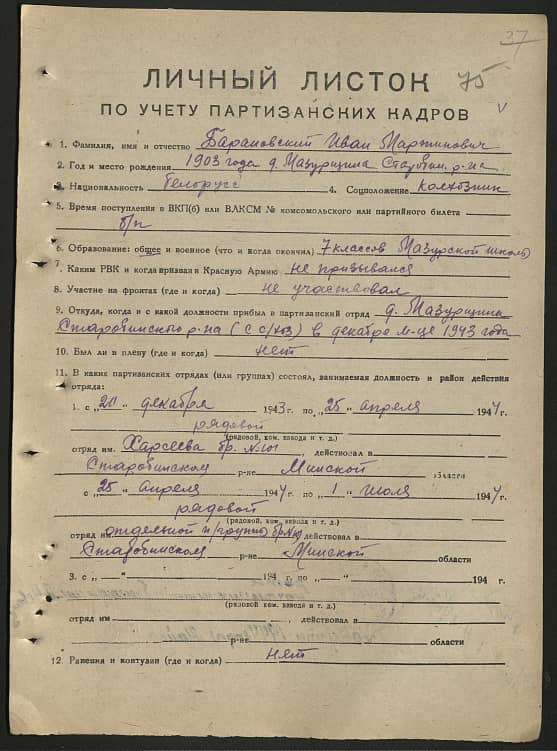 37
75
ЛИЧНЫЙ ЛИСТОК
ПО УЧЕТУ ПАРТИЗАНСКИХ КАДРОВ
1. Фамилия, имя и отчество Барановский Иван Мартинович
2. Год и место рождения 1903 года д. Мазурщина Старобин. р-на
3. Национальность белорус 4. Соцположение колхозник
5. Время поступления в ВКП(б) или ВЛКСМ № комсомольского или партийного билета
б/п
6. Образование: общее и военное (что и когда окончил) 7 классов Мазурской школы
7. Каким РВК и когда призван в Красную Армию не призывался
8. Участие на фронтах (где и когда) не участвовал
9. Откуда, когда и с какой должности прибыл в партизанский отряд д. Мазурщина
Старобинского р-на (с с/хоз) в декабре м-це 1943 года
10. Был ли в плену (где и когда) нет
11. В каких партизанских отрядах (или группах) состоял, занимаемая должность и район действия
отряда:
1. с „20" декабря 1943 г. по „25" апреля 1944 г.
рядовой
(рядовой, ком. взвода и т. д.)
отряд им. бр. №101, действовал в
Старобинском р-не Минской области
с „25" апреля 1944 г. по „1" июля 1944 г.
рядовой
(рядовой, ком. взвода и т. д.)
отряд им отдельной п/группы действовал в
Старобинском р-не Минской области
3. с „ — " 194 г. по „ — " 194 г.
(рядовой ком. взвода и т. д.)
отряд им , действовал в
р-не области
12. Ранения и контузии (где и когда) нет